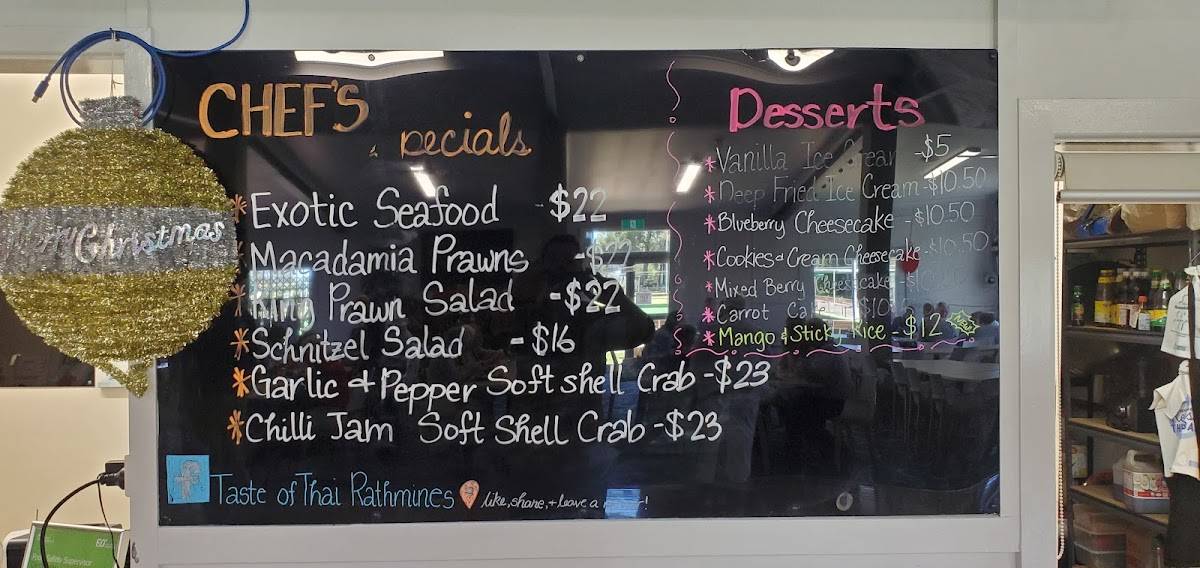 CHEF'S
Specials
* Exotic Seafood - $22
* Macadamia Prawns - $22
* King Prawn Salad - $22
* Schnitzel Salad - $16
* Garlic & Pepper Soft shell Crab - $23
* Chilli Jam Soft Shell Crab - $23
Taste of Thai Rathmines like, share, + leave a
Desserts
* Vanilla Ice Cream - $5
* Deep Fried Ice Cream - $10.50
* Blueberry Cheesecake - $10.50
* Cookies & Cream Cheesecake - $10.50
* Mixed Berry Cheesecake
* Carrot Cake $10
* Mango & Sticky Rice - $12 New
Christmas
Supervisor